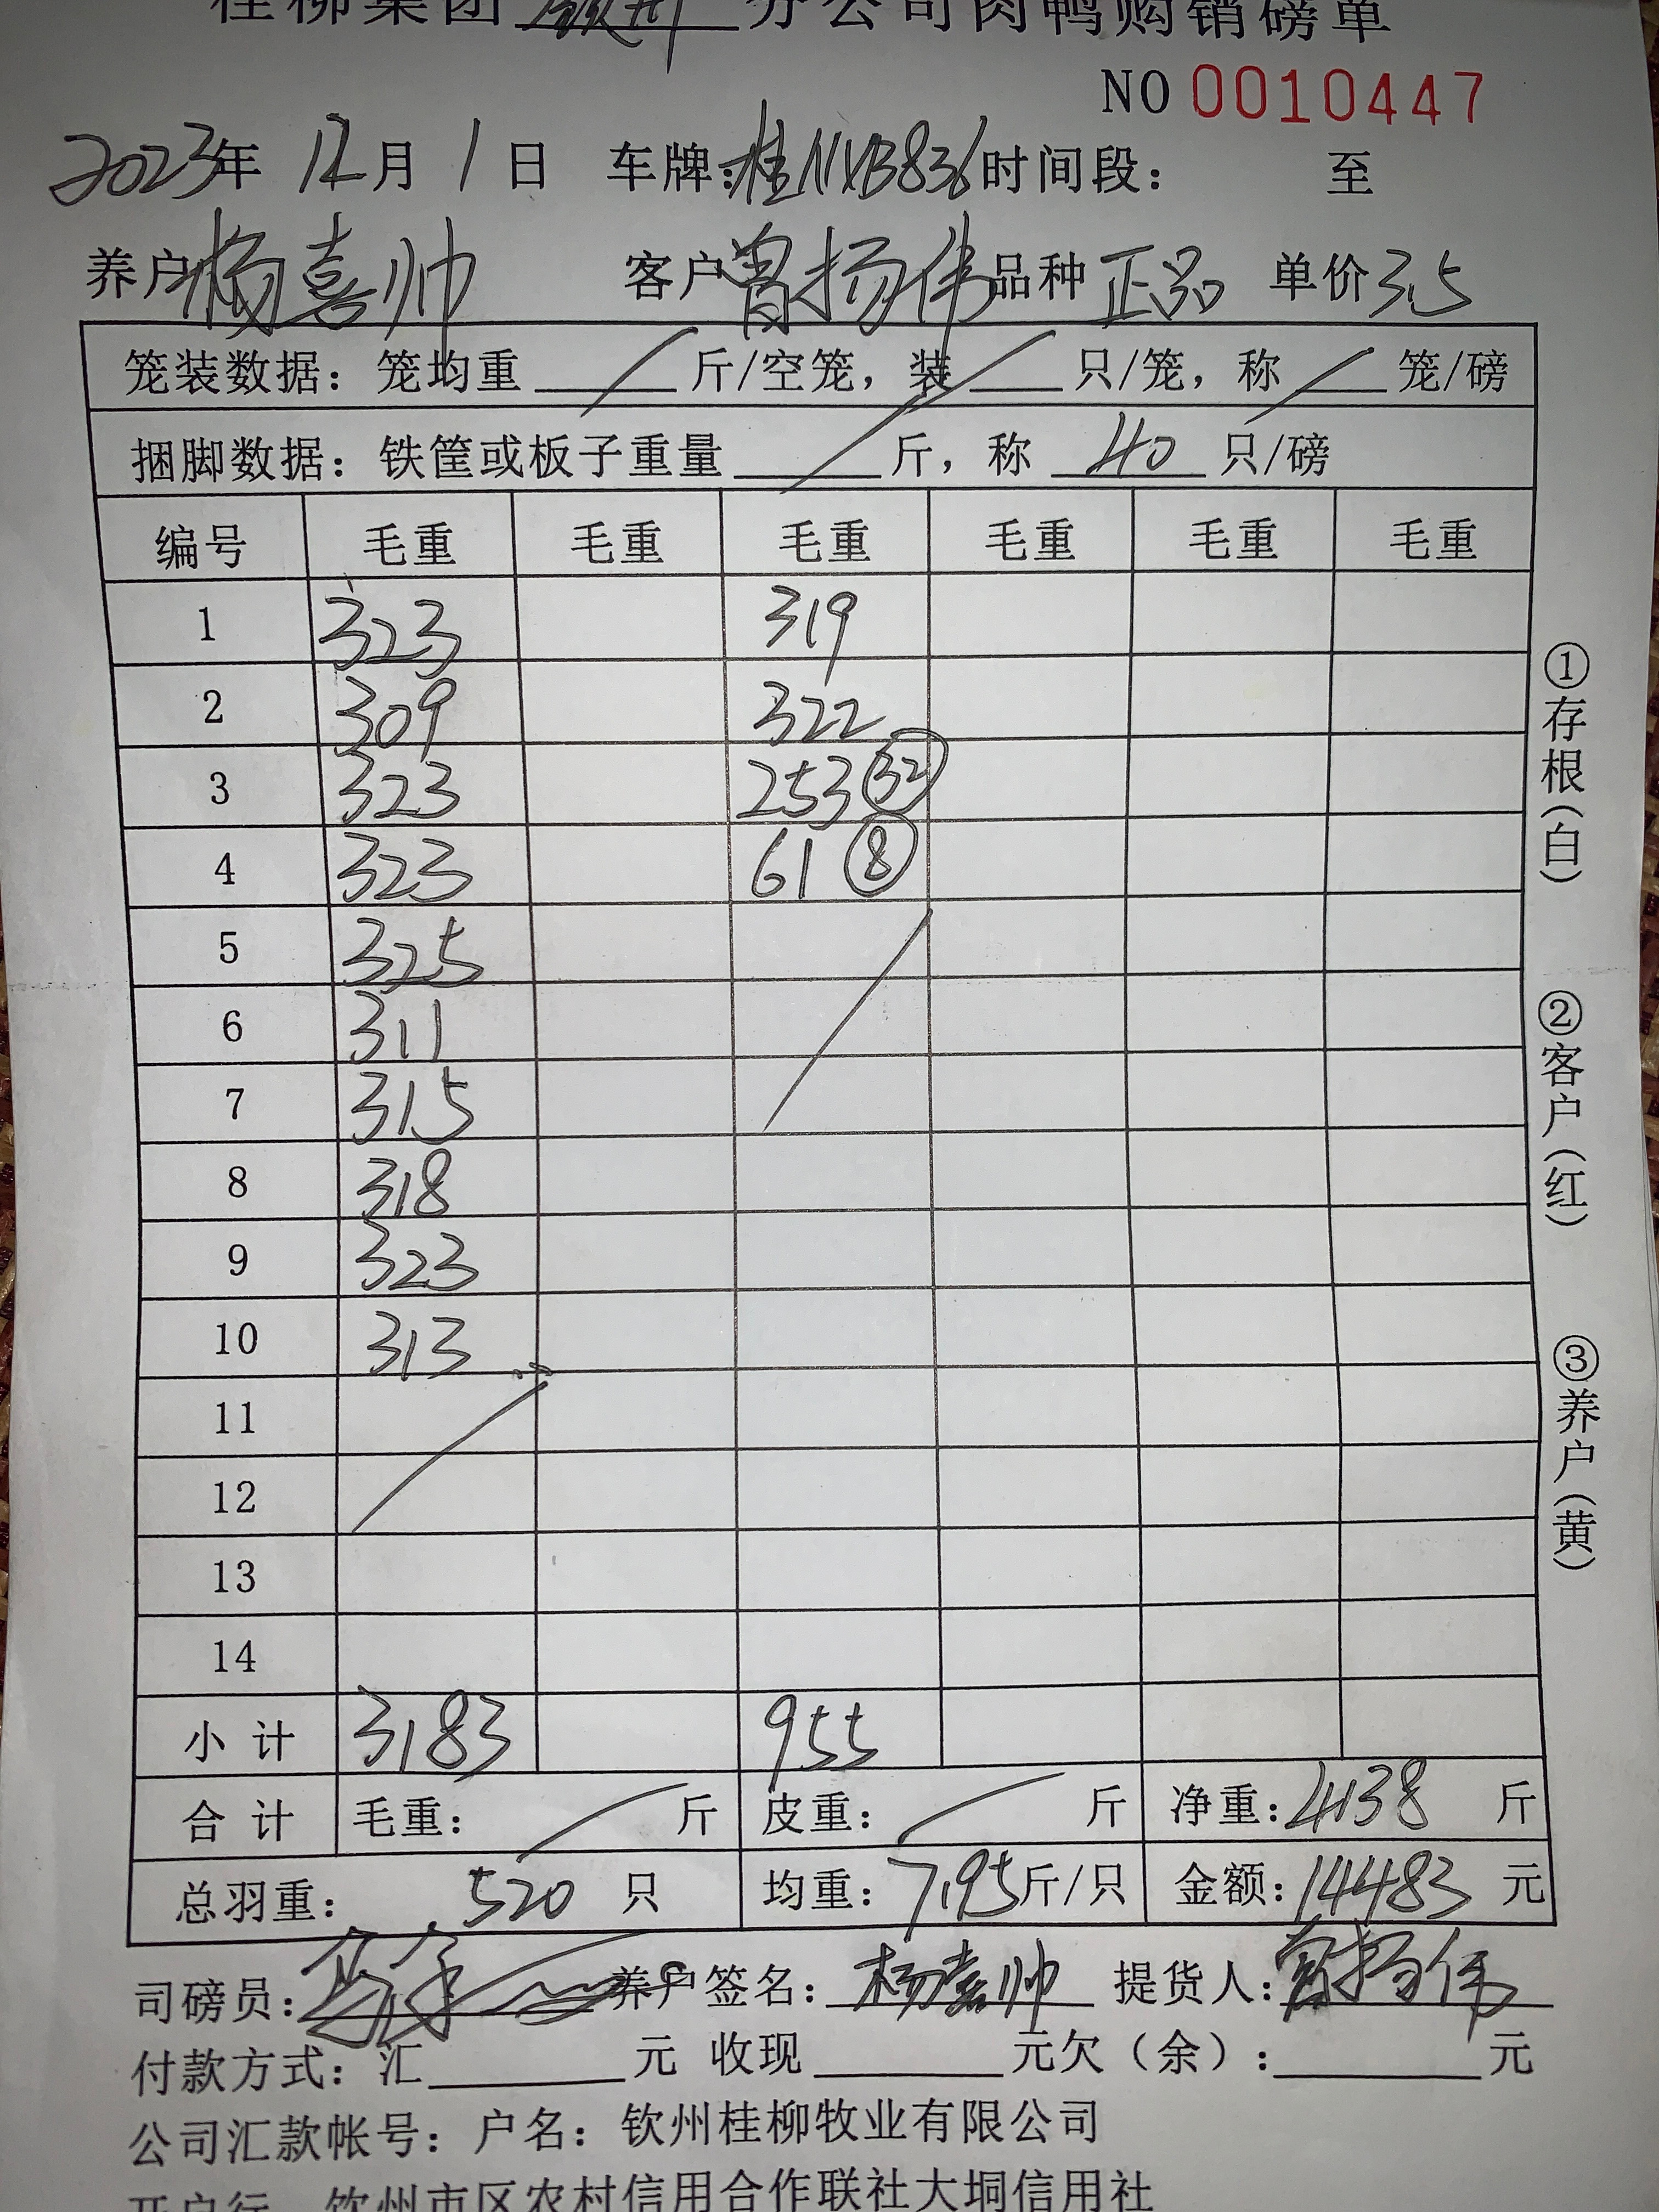 桂柳集团 钦州 分公司肉鸭购销磅单
NO 0010447
2023年 12月 1日 车牌:桂NXB836 时间段: 至
养户 杨喜帅 客户 曾扬伟 品种 正品 单价 3.5
笼装数据: 笼均重 斤/空笼, 装 只/笼, 称 笼/磅
捆脚数据: 铁筐或板子重量 斤, 称 40 只/磅
编号 毛重 毛重 毛重 毛重 毛重 毛重
1 323 319
2 309 322
3 323 253 32
4 323 61 8
5 325
6 311
7 315
8 318
9 323
10 313
11
12
13
14
小计 3183 955
合计 毛重: 斤 皮重: 斤 净重: 4138 斤
总羽重: 520 只 均重: 7.95 斤/只 金额: 14483 元
司磅员: 养户签名: 杨喜帅 提货人: 曾扬伟
付款方式: 汇 元 收现 元欠(余): 元
公司汇款帐号: 户名: 钦州桂柳牧业有限公司
开户行 钦州市区农村信用合作联社大垌信用社
①存根(白)
②客户(红)
③养户(黄)